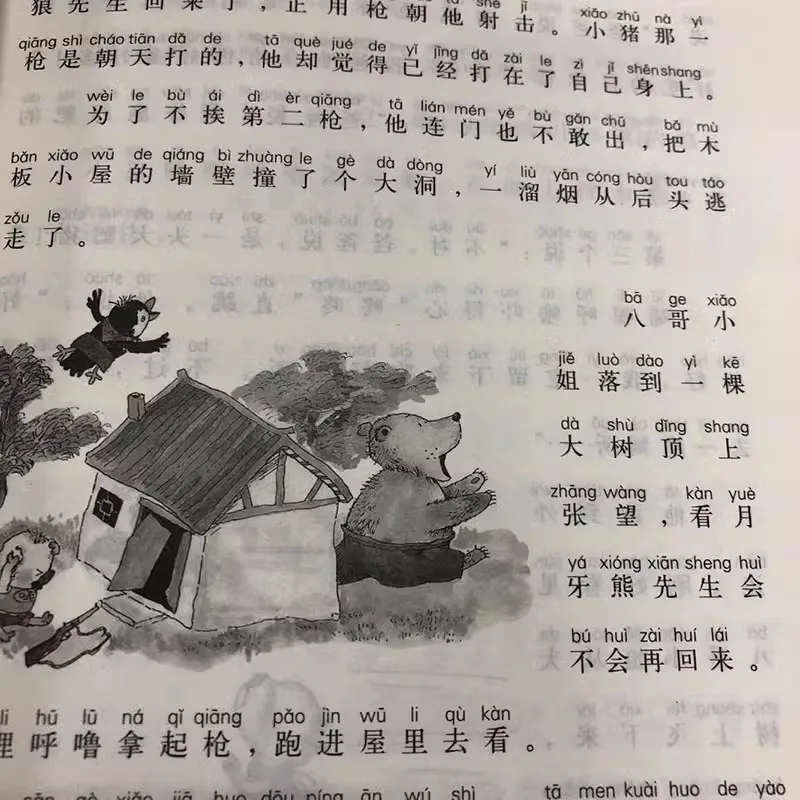 狼先生回来了，正用枪朝他射击。小猪那一
qiāng shì cháo tiān dǎ de tā què jué de yǐ jīng dǎ zài le zì jǐ shēn shang
枪是朝天打的，他却觉得已经打在了自己身上。
wèi le bù ái dì èr qiāng tā lián mén yě bù gǎn chū bǎ mù
为了不挨第二枪，他连门也不敢出，把木
bǎn xiǎo wū de qiáng bì zhuàng le gè dà dòng yí liù yān cóng hòu tou táo
板小屋的墙壁撞了个大洞，一溜烟从后头逃
zǒu le
走了。
bā ge xiǎo
八哥小
jiě luò dào yì kē
姐落到一棵
dà shù dǐng shang
大树顶上
zhāng wàng kàn yuè
张望，看月
yá xióng xiān sheng huì
牙熊先生会
bú huì zài huí lái
不会再回来。
li hū lū ná qǐ qiāng pǎo jìn wū li qù kàn
哩呼噜拿起枪，跑进屋里去看。
gè xiǎo jiā huo dōu píng ān wú shì tā men kuài huo de yào